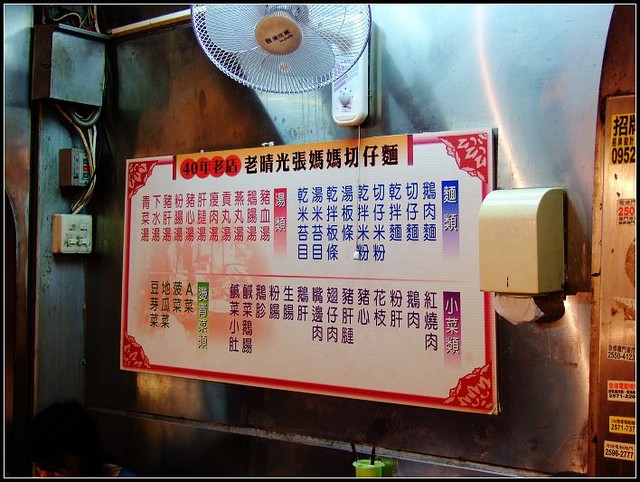 40年老店 老晴光張媽媽切仔麵
麵類
鵝肉麵
切仔麵
乾拌麵
切仔米粉
乾拌米粉
湯板條
乾拌板條
湯米苔目
乾米苔目
湯類
豬血湯
鵝腸湯
燕丸湯
貢丸湯
瘦肉湯
肝腱湯
豬心湯
粉腸湯
豬肝湯
下水湯
青菜湯
小菜類
紅燒肉
鵝肉
粉肝
花枝
豬心
豬肝腱
翅仔肉
嘴邊肉
鵝肝
生腸
粉腸
鵝胗
鹹菜鵝腸
鹹菜小肚
燙青菜類
A菜
菠菜
地瓜菜
豆芽菜
招牌
0952
250
2550-4123
2571-737
2596-2777